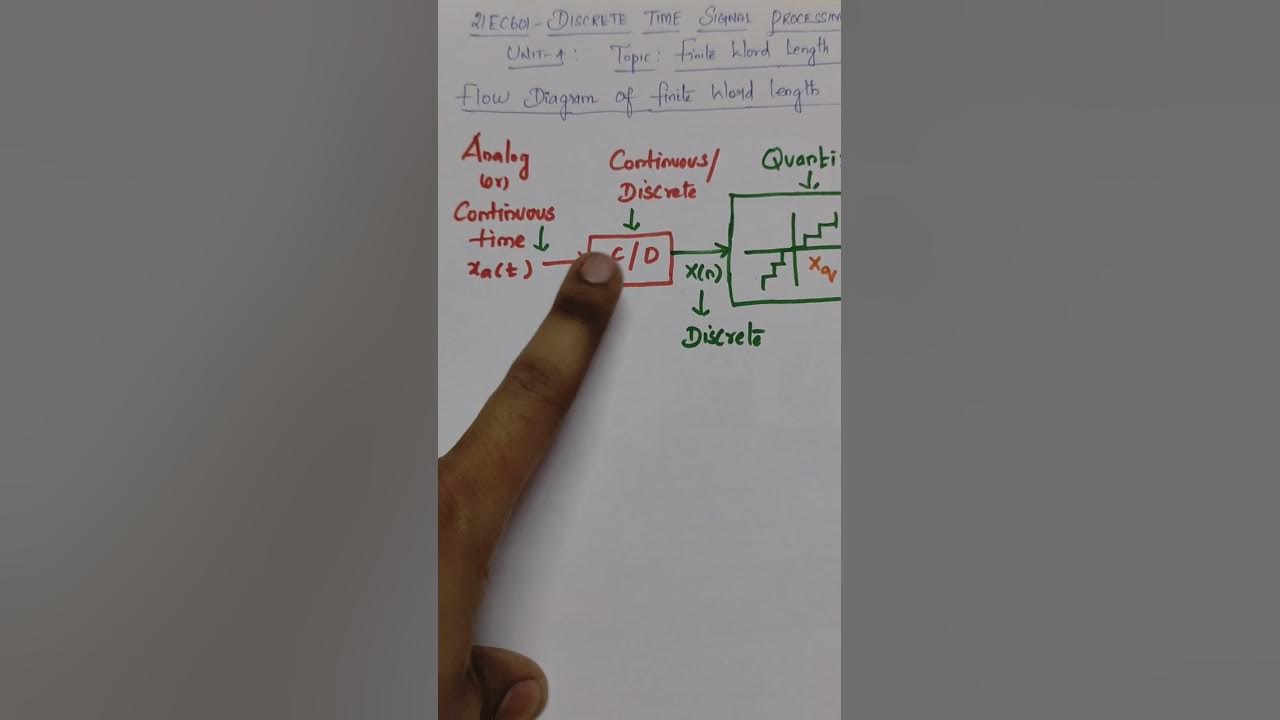 21EC601 - DISCRETE TIME SIGNAL PROCESSIN
UNIT-4: Topic: Finite Word Length
Flow Diagram of finite Word length
Analog
(or)
Continuous
time
xa(t)
Continuous/
Discrete
C/D
x(n)
Discrete
Quanti
Xq